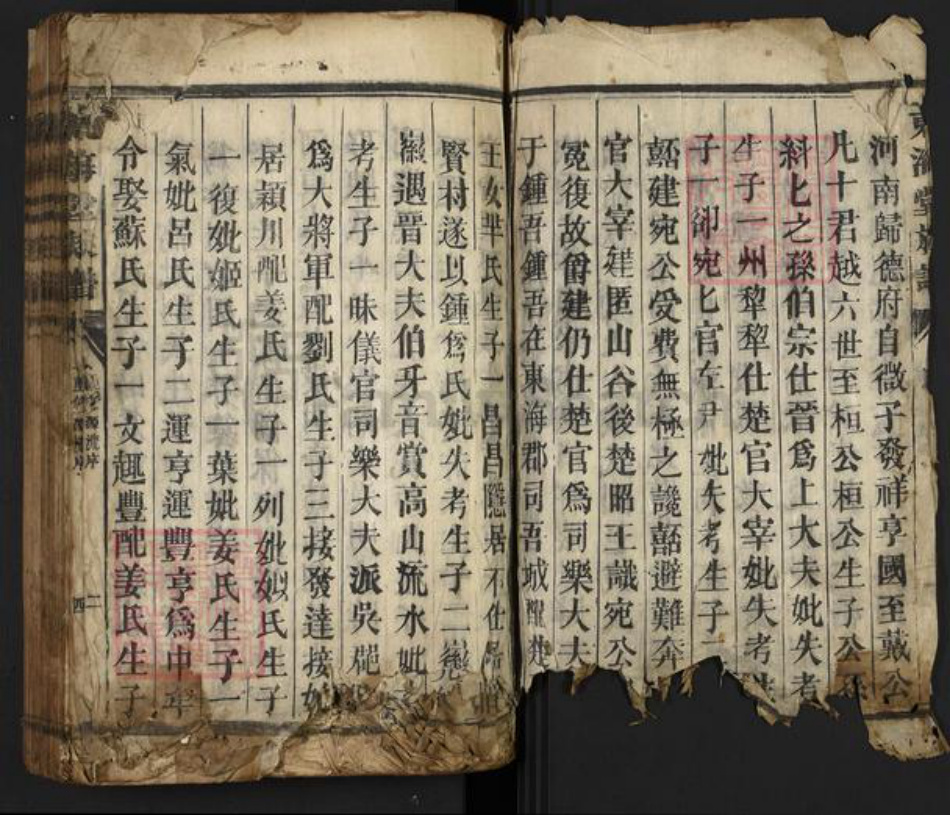 河南歸德府自微子發祥亨國至戴公
凡十君越六世至桓公桓公生子公孫
糾匕之孫伯宗仕晉爲上大夫妣失考
生子一州犂犂仕楚官大宰妣失考
子一郤宛匕官左尹妣失考生子
嚭建宛公受費無極之讒嚭避難奔
官大宰建匿山谷後楚昭王識宛公
冤復故爵建仍仕楚官爲司樂大夫
于鍾吾鍾吾在東海郡司吾城配
王女羋氏生子一昌昌隱居不仕
賢村遂以鍾爲氏妣失考生子二
巖遇晉大夫伯牙音賞高山流水妣
考生子一昧儀官司樂大夫派吳
爲大將軍配劉氏生子三接發達接
居穎川配姜氏生子一列妣姒氏生子
一復妣姬氏生子一葉妣姜氏生子一
氣妣呂氏生子二運亨運豐亨爲中
令娶蘇氏生子一文趣豐配姜氏生子
東海堂族譜
四